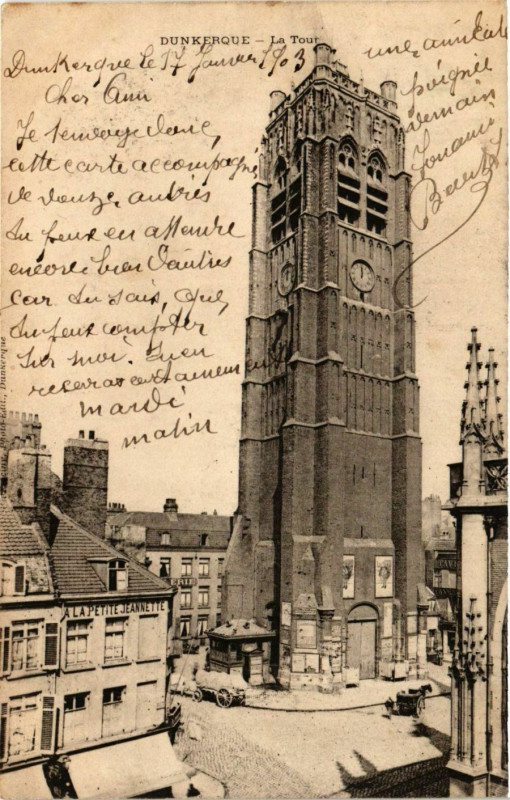 DUNKERQUE – La Tour
Dunkerque le 17 Janvier 1903
Cher Ami
Je t'envoye donc,
cette carte accompagné
de douze autres
tu peux en attendre
encore bien d'autres
car tu sais, que,
tu peux compter
sur moi. Tu en
receveras certainement
mardi
matin
une amicale
poignée
demain
LA PETITE JEANNETTE
ERIE
Dunkerque